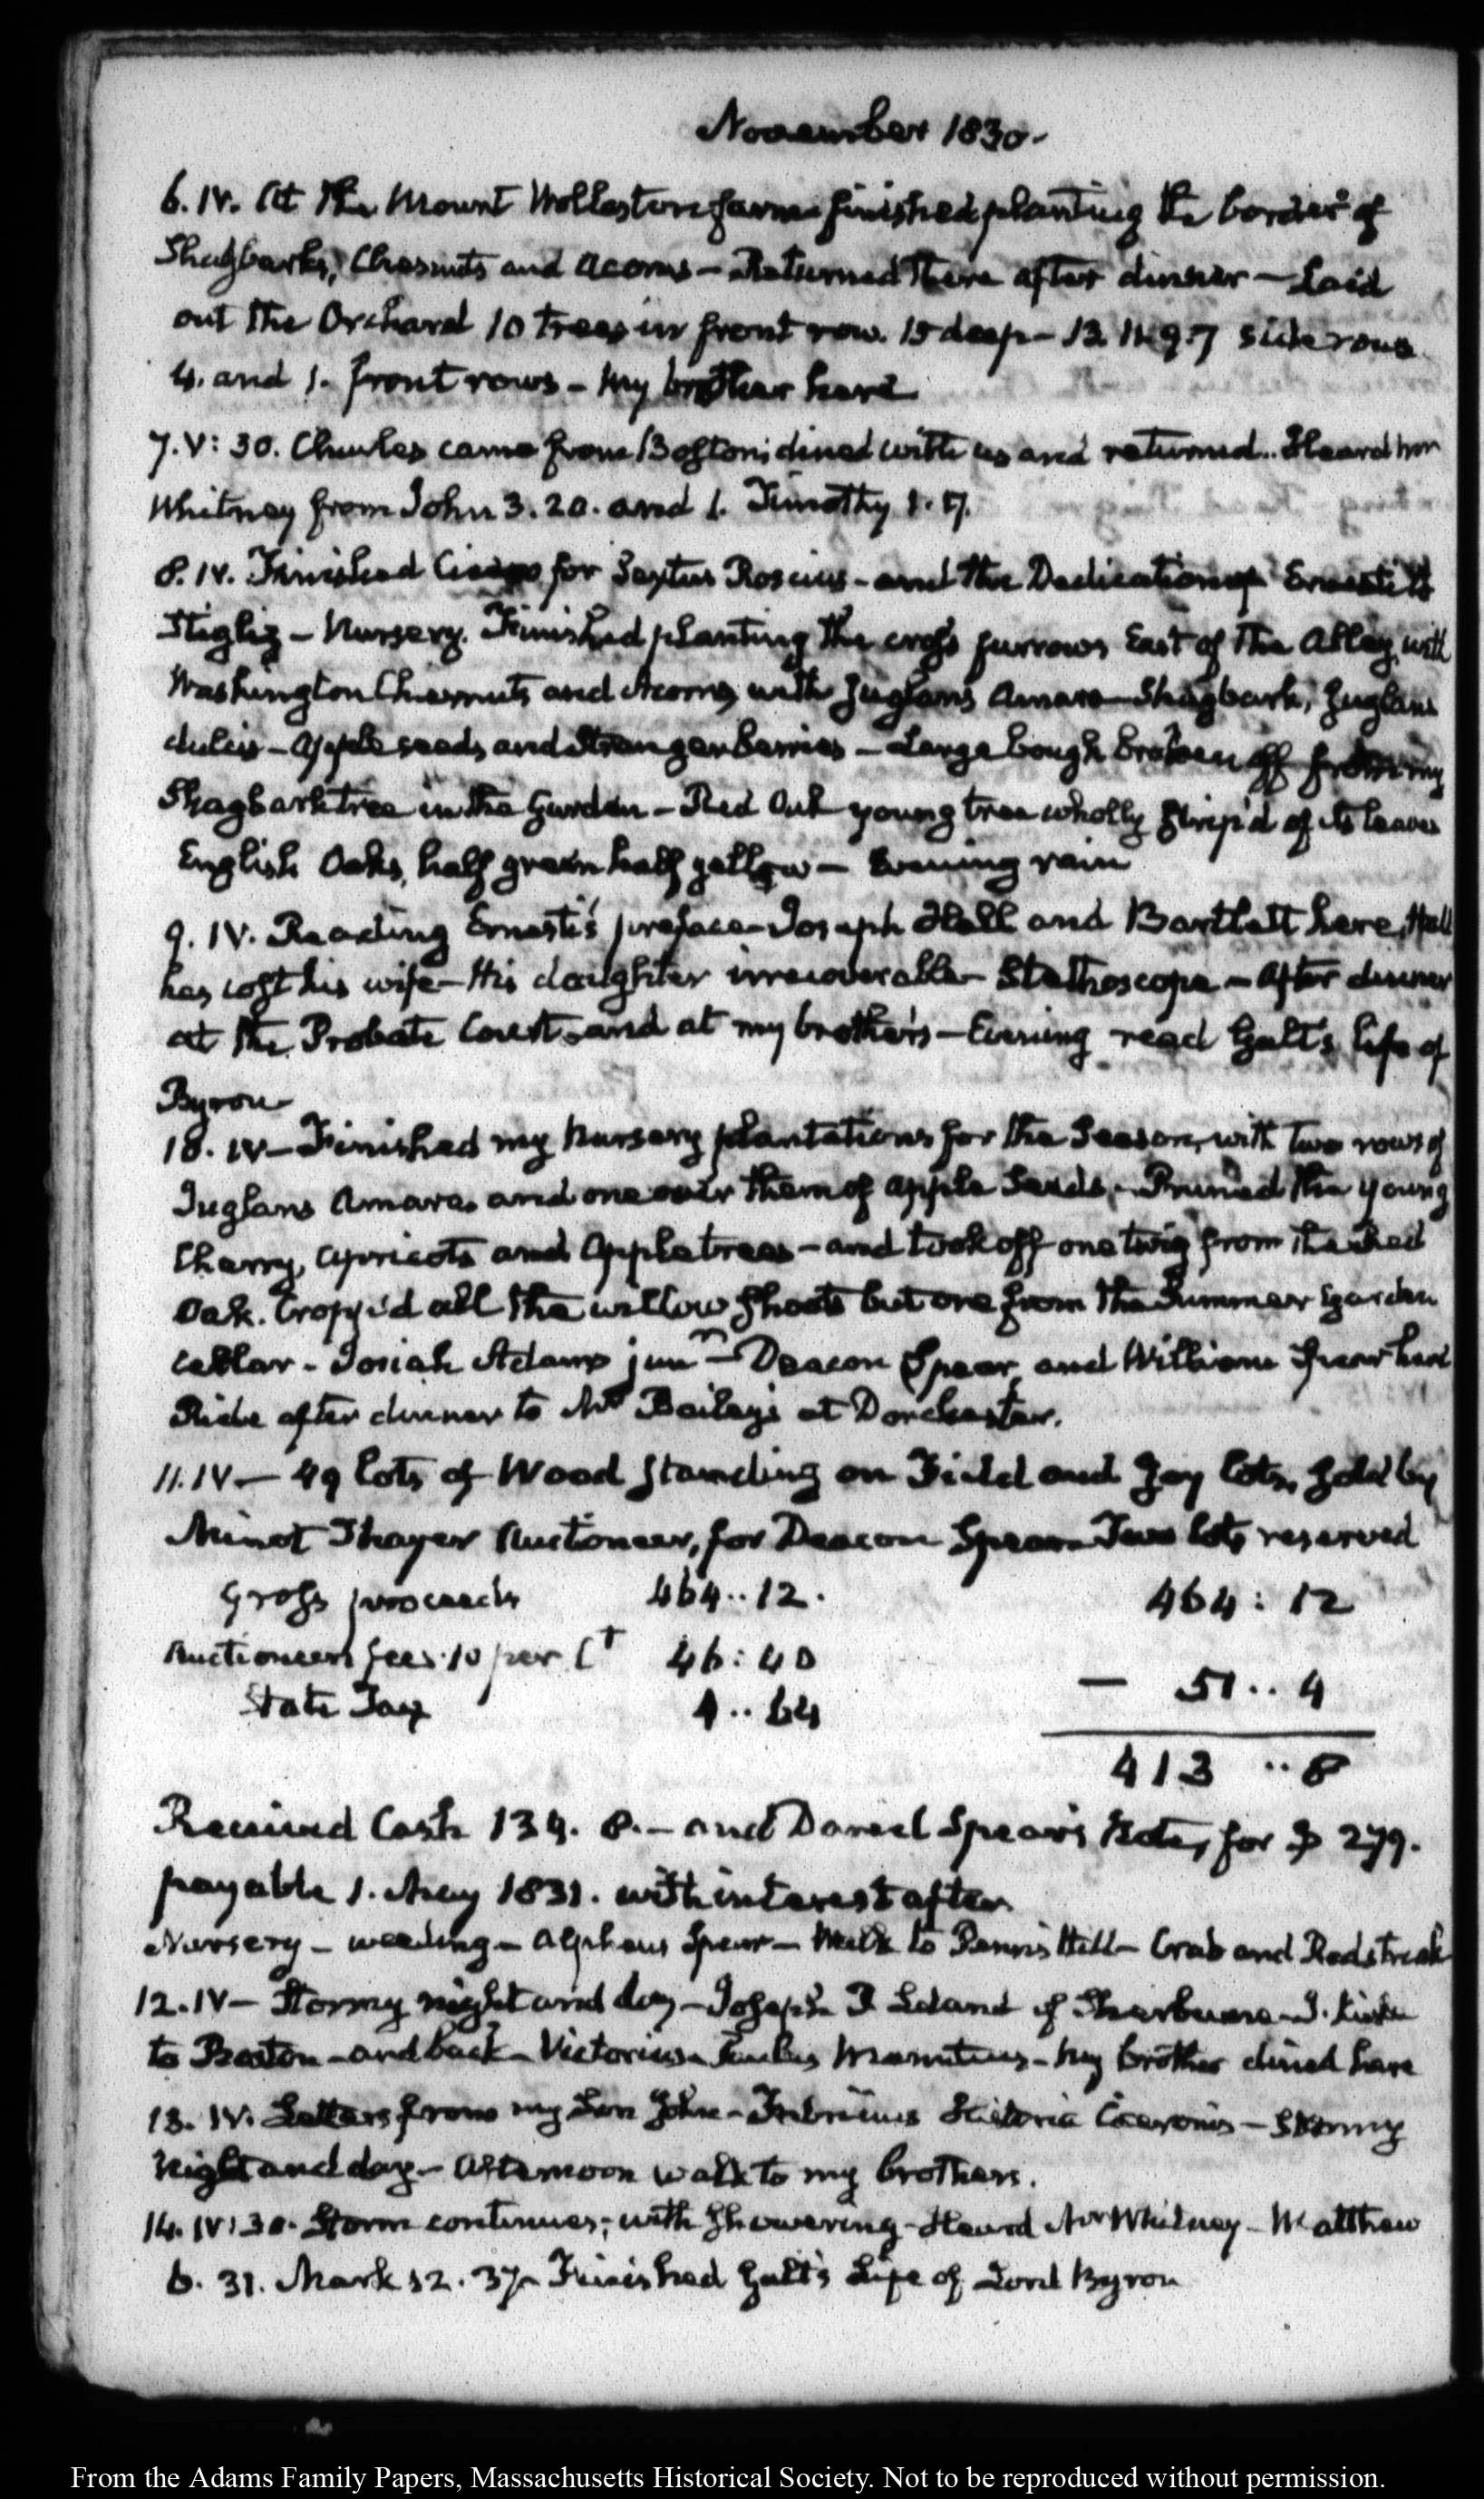 November 1830.
6. IV. At the Mount Wollaston farm finished planting the border of
Shagbarks, Chesnuts and Acorns – Returned there after dinner – Laid
out the Orchard 10 trees in front row. 15 deep – 13. 11. 9. 7 side rows
4. and 1. front rows – My brother here
7. V: 30. Charles came from Boston; dined with us and returned.. Heard Mr
Whitney from John 3. 20. and 1. Timothy 1. 17.
8. IV. Finished Cicero for Sextus Roscius – and the Dedication of Ernesti to
Stiglitz – Nursery. Finished planting the cross furrows East of the Alley, with
Washington Chesnuts and Acorns, with Juglans Amara – Shagbark, Juglans
dulcis – Apple seeds and Stranger berries – Large bough broken off from my
Shagbark tree in the Garden – Red Oak young tree wholly stripp'd of its leaves
English Oaks, half green half yellow – Evening rain
9. IV. Reading Ernesti's preface – Joseph Hall and Bartlett here, Hall
has lost his wife – His daughter irrecoverable – Stethoscope – After dinner
at the Probate Court – and at my brother's – Evening read Galt's life of
Byron
10. IV – Finished my Nursery plantations for the Season, with two rows of
Juglans Amara and one over them of apple Seeds, – Pruned the young
Cherry, Apricots and Appletrees – and took off one twig from the Red
Oak. Cropp'd all the willow shoots but one from the Summer Garden
cellar – Josiah Adams junr – Deacon Spear and William Spear here
Ride after dinner to Mr Bailey's at Dorchester.
11. IV – 49 lots of Wood standing on Field and Gay lots, sold by
Minot Thayer Auctioneer, for Deacon Spear – Two lots reserved
Gross proceeds 464.. 12. 464: 12
Auctioneers fees 10 per Ct 46: 40
State Tax 4.. 64 – 51.. 4
413 .. 8
Received Cash 134. 8. – and Daniel Spear's Note, for $ 279.
payable 1. May 1831. with interest after
Nursery – weeding – Alpheus Spear – Walk to Penn's Hill – Crab and Redstreak
12. IV – Stormy night and day – Joseph D Leland of Sherburne – J. Kirke
to Boston – and back – Victorius – Paulus Manutius – My brother dined here
13. IV. Letters from my Son John – Fabricius Historia Ciceronis – Stormy
Night and day – Afternoon walk to my brothers.
14. IV: 30. Storm continues; with showering – Heard Mr Whitney – Matthew
6. 31. Mark 12. 37 – Finished Galt's Life of Lord Byron
From the Adams Family Papers, Massachusetts Historical Society. Not to be reproduced without permission.